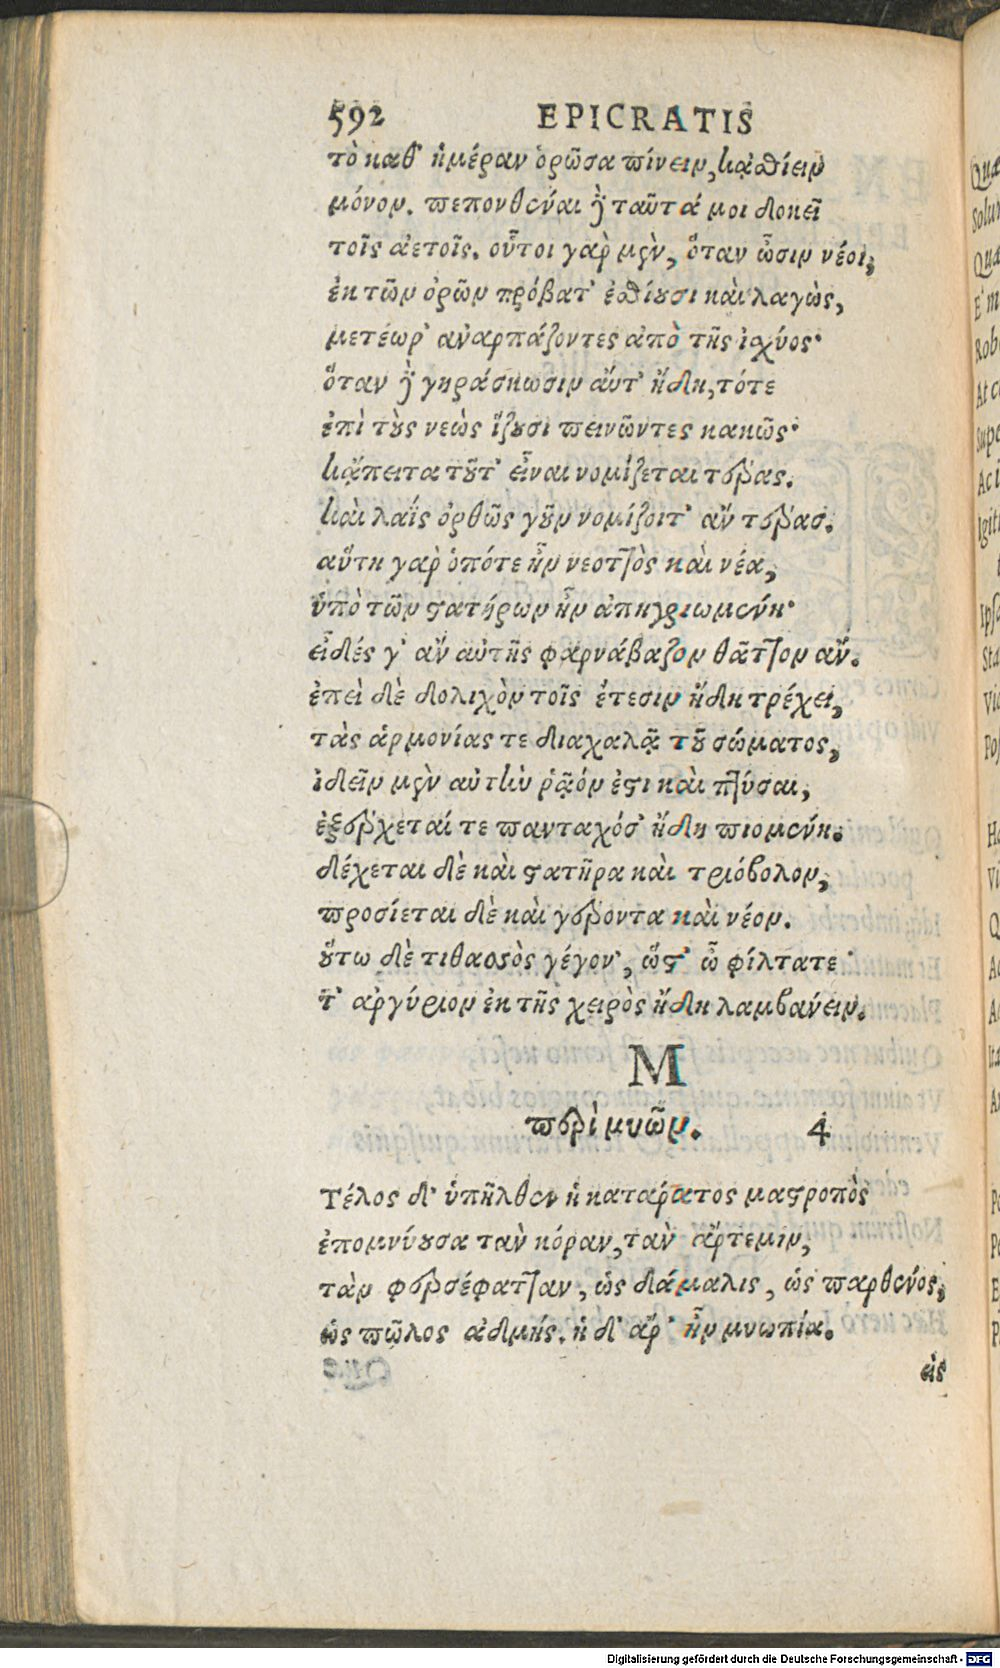 592 EPICRATIS
τὸ καθ' ἡμέραν ὁρῶσα πίνειν, κᾀσθίειν
μόνον. πεπονθέναι δὲ ταῦτά μοι δοκεῖ
τοῖς ἀετοῖς. οὗτοι γὰρ μὲν, ὅταν ὦσιν νέοι,
ἐκ τῶν ὀρῶν πρόβατ' ἐσθίουσι καὶ λαγὼς,
μετέωρ' ἀναρπάζοντες ἀπὸ τῆς ἰσχύος·
ὅταν δὲ γηράσκωσιν αὔτ' ἤδη, τότε
ἐπὶ τοὺς νεὼς ἵζουσι πεινῶντες κακῶς·
κᾄπειτα τοῦτ' εἶναι νομίζεται τέρας.
καὶ λαΐς ὀρθῶς γοῦν νομίζοιτ' ἂν τέρας.
αὕτη γὰρ ὁπότε ἦν νεοττὸς καὶ νέα,
ὑπὸ τῶν στατήρων ἦν ἀπηγριωμένη·
εἶδές γ' ἂν αὐτῆς φαρνάβαζον θᾶττον ἄν.
ἐπεὶ δὲ δολιχὸν τοῖς ἔτεσιν ἤδη τρέχει,
τὰς ἁρμονίας τε διαχαλᾷ τοῦ σώματος,
ἰδεῖν μὲν αὐτὴν ῥᾷόν ἐστι καὶ πτύσαι,
ἐξέρχεταί τε πανταχόσ' ἤδη πιομένη.
δέχεται δὲ καὶ στατῆρα καὶ τριόβολον,
προσίεται δὲ καὶ γέροντα καὶ νέον.
οὕτω δὲ τιθασὸς γέγον', ὥστ' ὦ φίλτατε
τ' ἀργύριον ἐκ τῆς χειρὸς ἤδη λαμβάνειν.
M
περὶ μυῶν. 4
Τέλος δ' ὑπῆλθεν ἡ κατάρατος μαστροπὸς
ἐπομνύουσα τὰν κόραν, τὰν ἄρτεμιν,
τὰν φερσέφατταν, ὡς δάμαλις, ὡς παρθένος,
ὡς πῶλος ἀδμής. ἡ δ' ἄρ' ἦν μυωπία.
εἰς
Quæ
Digitalisierung gefördert durch die Deutsche Forschungsgemeinschaft - DFG